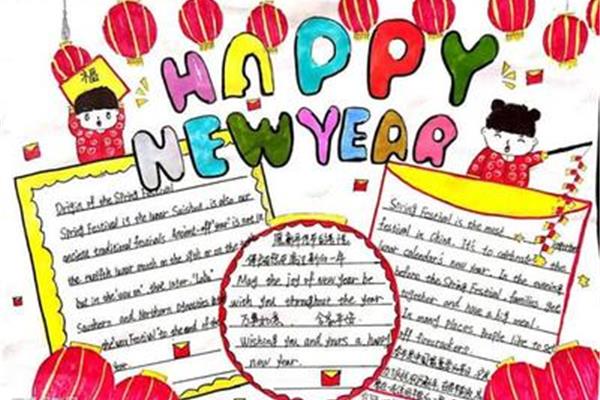 福
HAPPY
NEW YEAR
Origin of the Spring Festival
Spring Festival is the lunar Suichun, is also our
ancient traditional festivals. Ancient off "year" is not in
the twelfth lunar month on the 29th or on the
but in the "wax on", that later "Laba"
Southern and Northern Dynasties
Festival" to the end of the
May the joy of new year be
wish you throughout the year
万事如意、合家平安
Wishing you and yours a happy
new year.
Spring Festival is the most
festival in China. It's to celebrate the
lunar calendar's new year. In the evening
before the Spring Festival, families get
together and have a big meal.
In many places people like to set
off firecrackers.